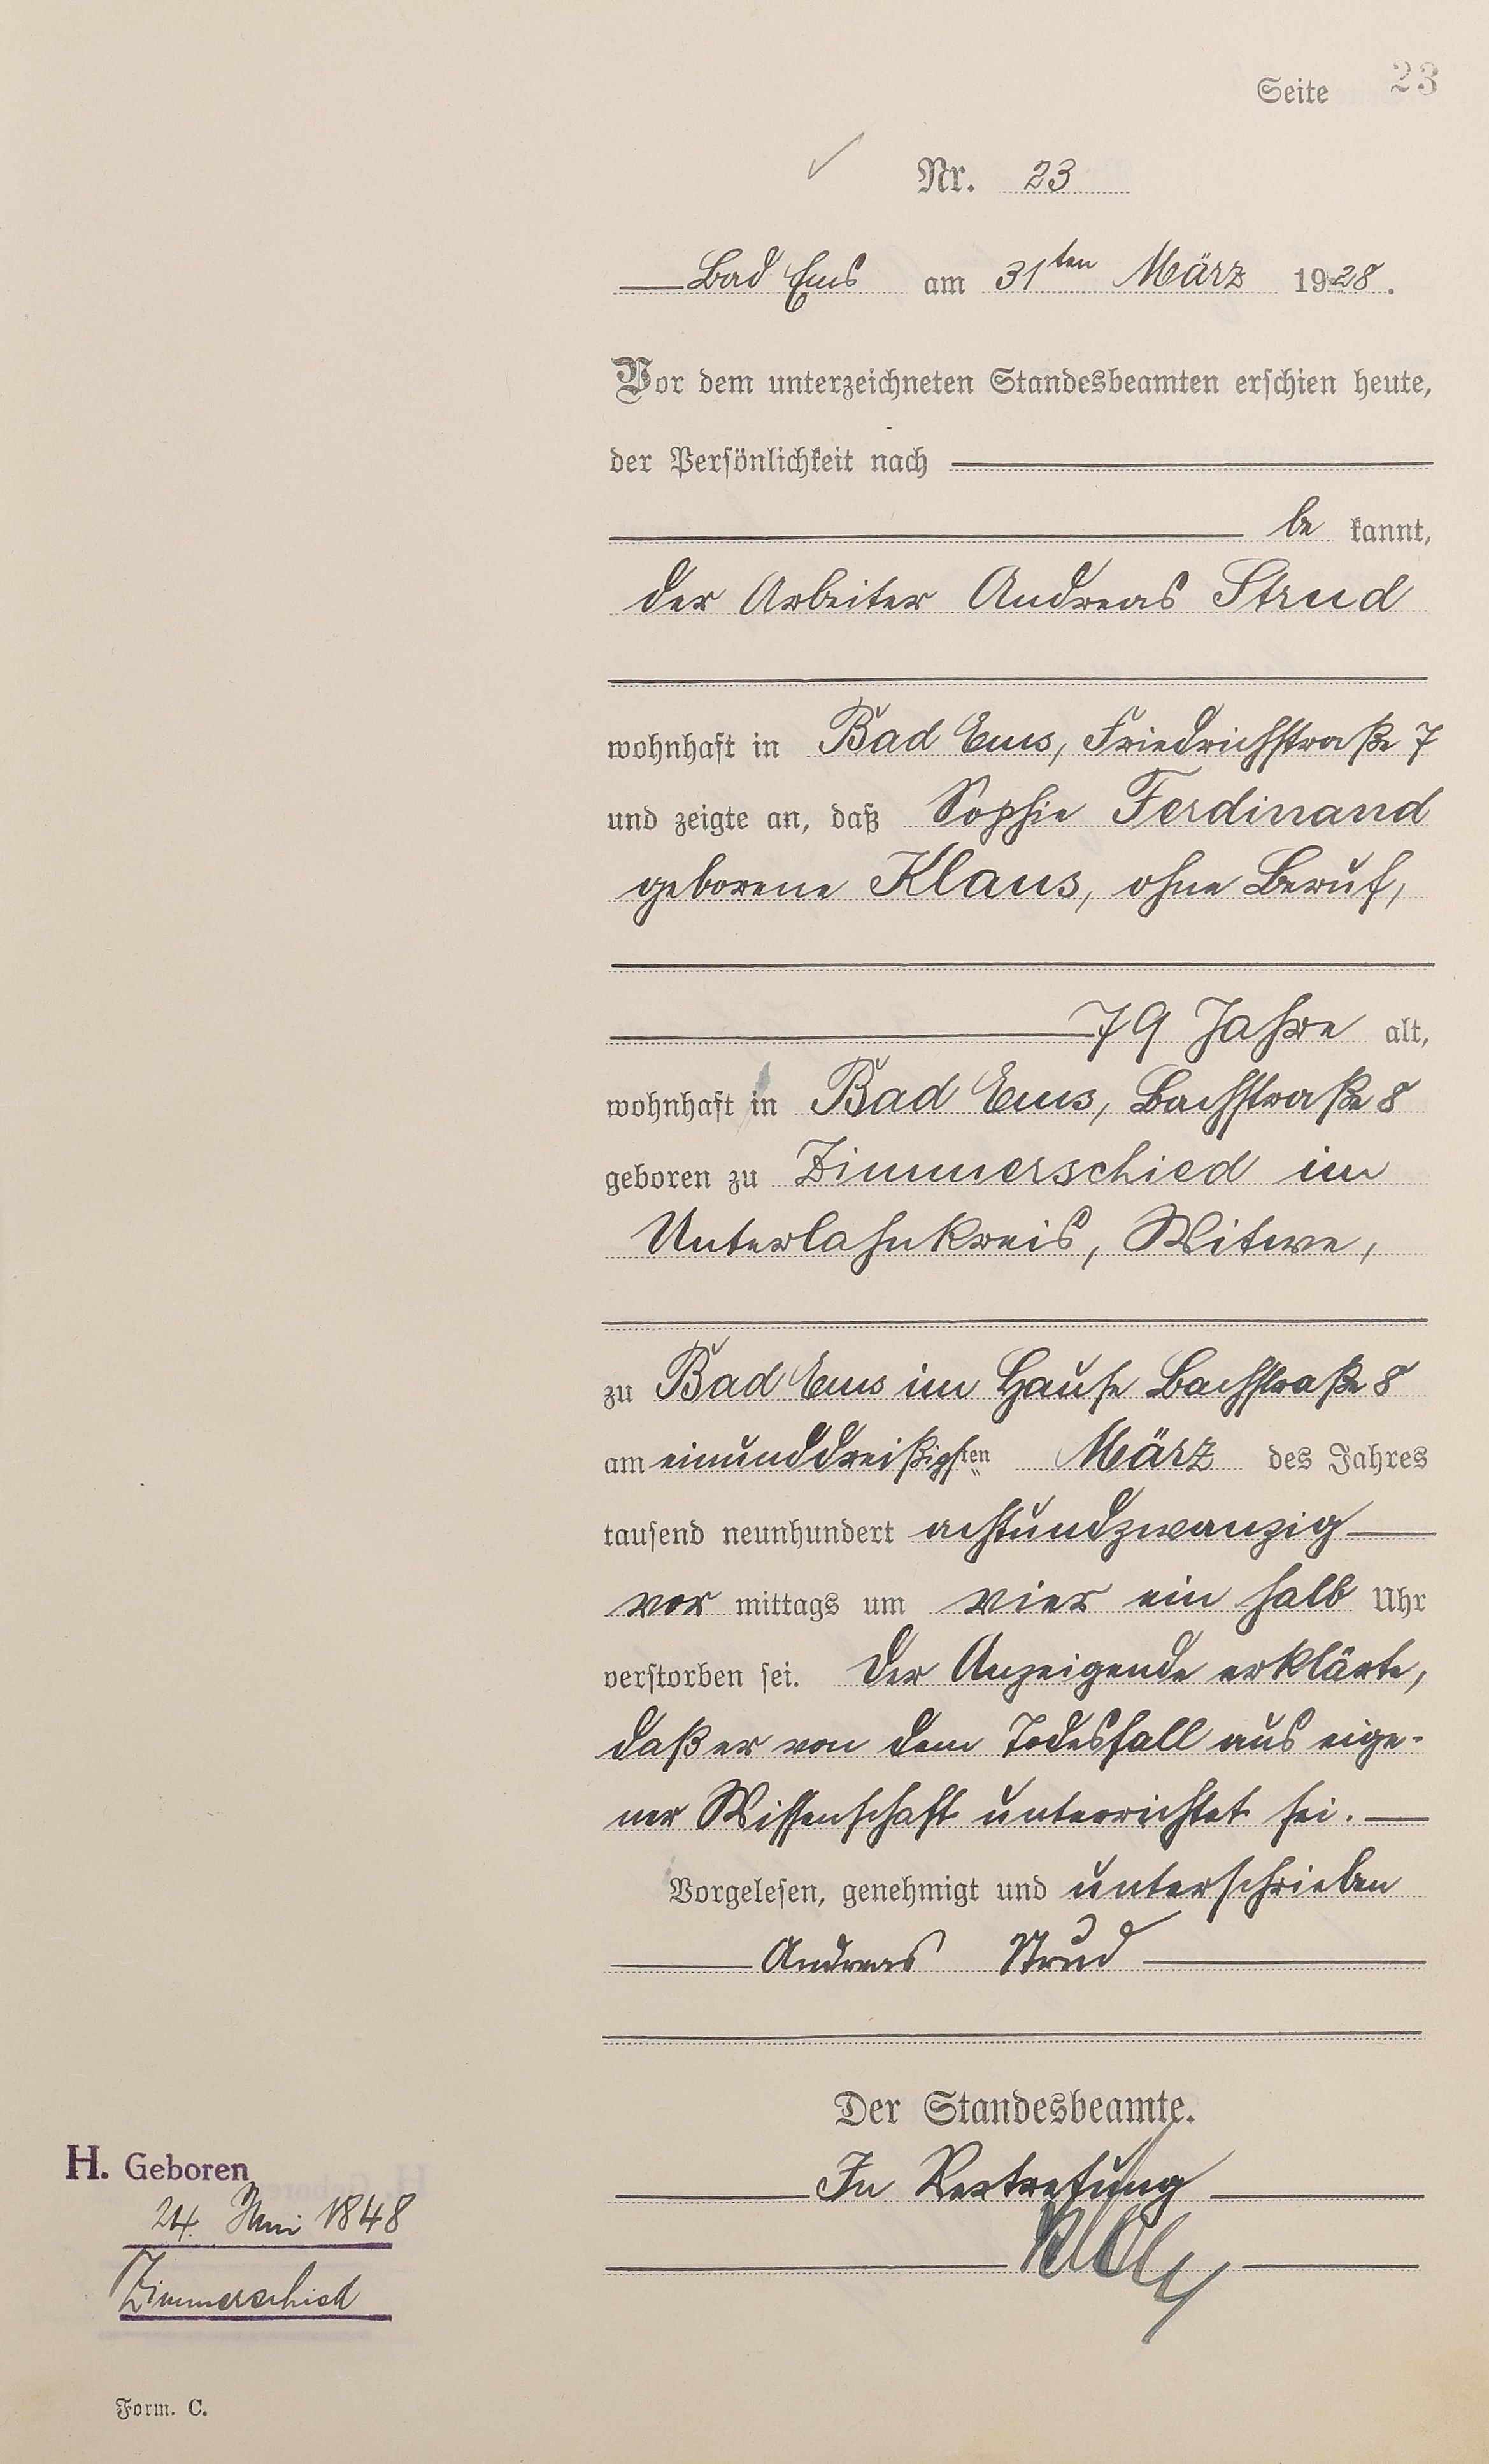 Seite 23
Nr. 23
Bad Ems am 31ten März 1928.
Vor dem unterzeichneten Standesbeamten erschien heute,
der Persönlichkeit nach
be kannt,
der Arbeiter Andreas Strud
wohnhaft in Bad Ems, Friedrichstraße 7
und zeigte an, daß Sophie Ferdinand
geborene Klaus, ohne Beruf,
79 Jahre alt,
wohnhaft in Bad Ems, Bachstraße 8
geboren zu Zimmerschied im
Unterlahnkreis, Witwe,
zu Bad Ems im Hause Bachstraße 8
am einunddreißigsten März des Jahres
tausend neunhundert achtundzwanzig
vor mittags um vier ein halb Uhr
verstorben sei. Der Anzeigende erklärte,
daß er von dem Todesfall aus eige-
ner Wissenschaft unterrichtet sei.
Vorgelesen, genehmigt und unterschrieben
Andreas Strud
Der Standesbeamte.
In Vertretung
H. Geboren
24. Juni 1848
Zimmerschied
Form. C.